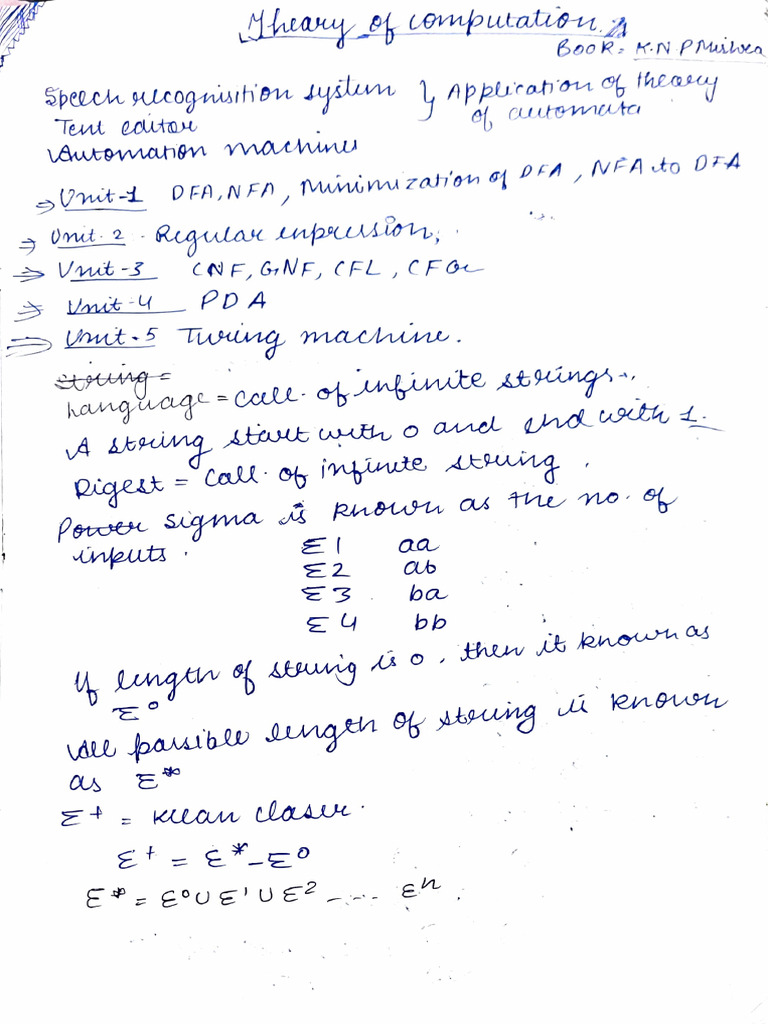 Theory of computation.
BOOK = K.N.P Mishra
Speech recognisition system } Application of theory
Text editor of automata
Automation machines
⇒ Unit-1 DFA, NFA, Minimization of DFA, NFA to DFA
⇒ Unit-2 - Regular expression,
⇒ Unit-3 CNF, GNF, CFL, CFG
⇒ Unit-4 PDA
⇒ Unit-5 Turing machine.
string =
Language = Coll. of infinite strings.
A string start with 0 and end with 1.
Rigest = Coll. of infinite string.
Power sigma is known as the no. of
inputs.
Σ1 aa
Σ2 ab
Σ3 ba
Σ4 bb
If length of string is 0, then it known as
Σ⁰
All possible length of string is known
as Σ*
Σ⁺ = Klean closer.
Σ⁺ = Σ* - Σ⁰
Σ* = Σ⁰ ∪ Σ¹ ∪ Σ² ----- Σⁿ.